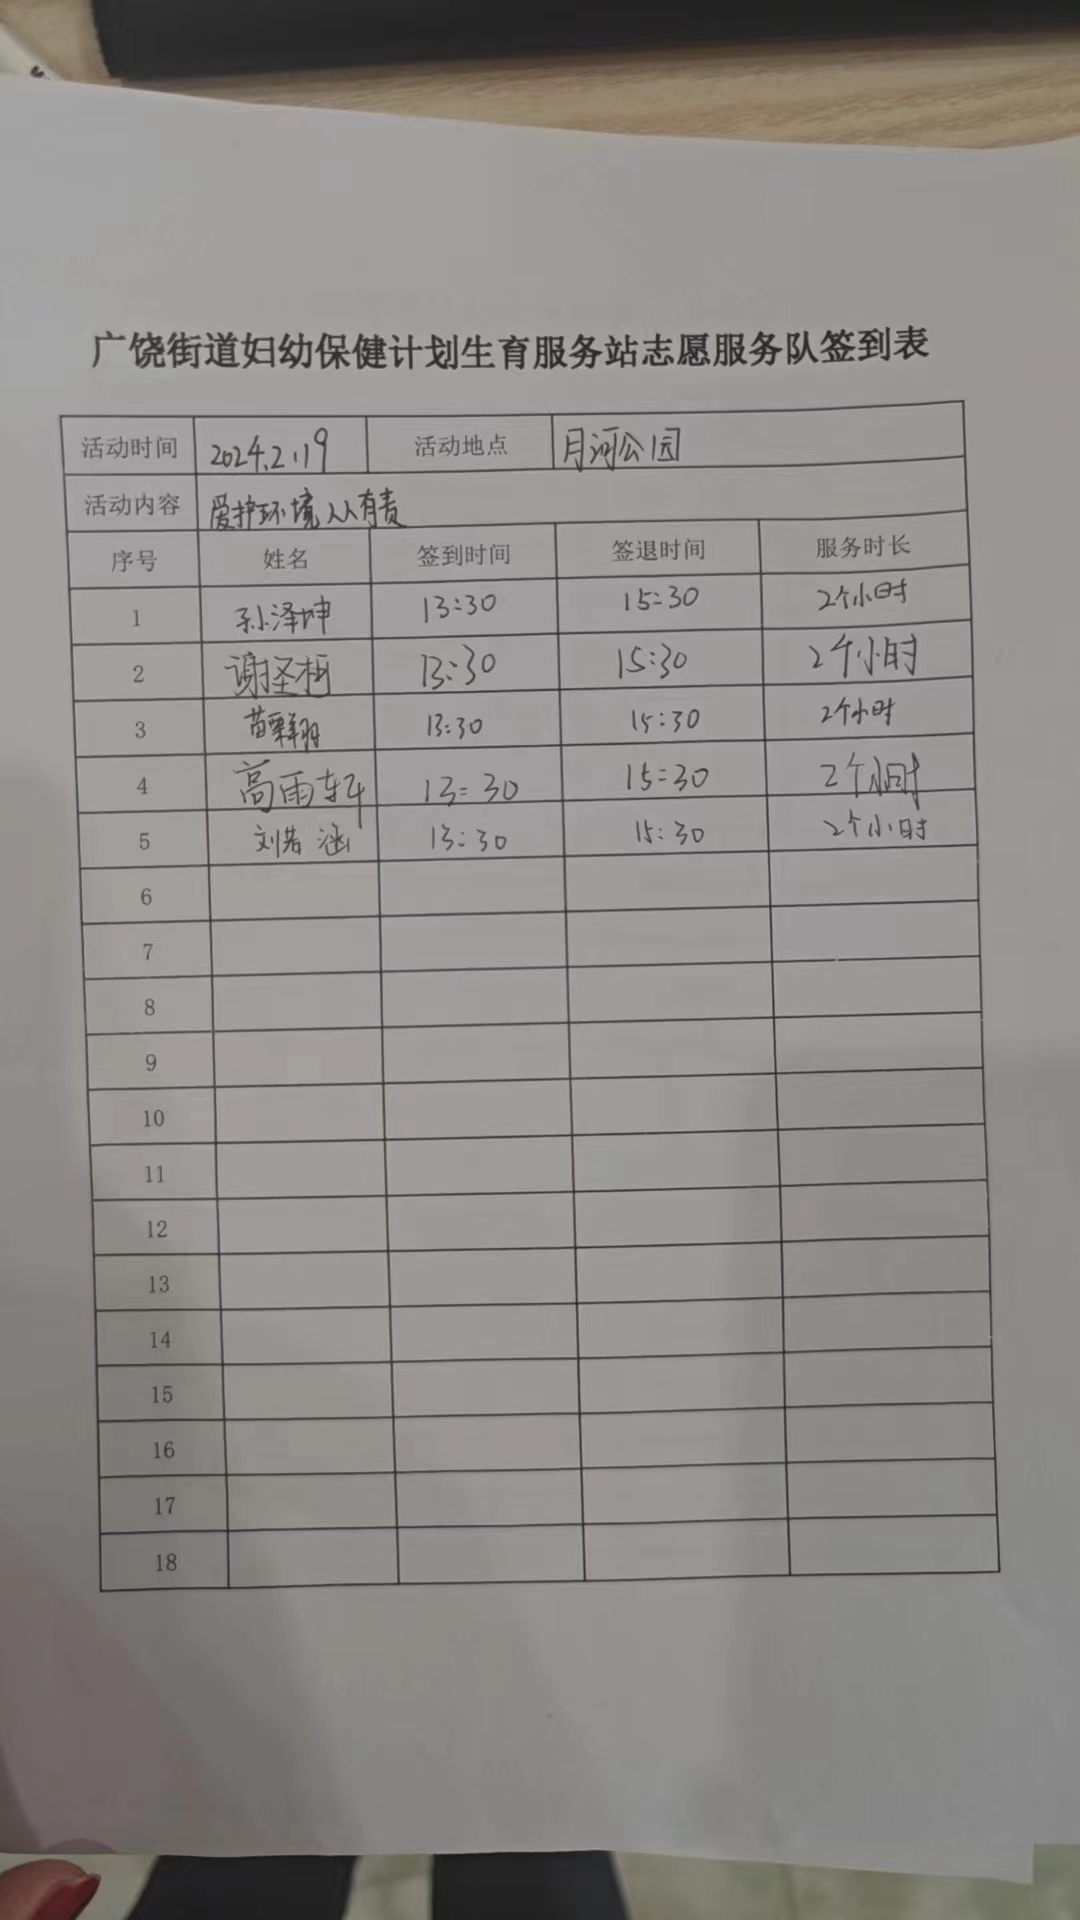 广饶街道妇幼保健计划生育服务站志愿服务队签到表
活动时间 2024.2.19 活动地点 月河公园
活动内容 爱护环境人人有责
序号 姓名 签到时间 签退时间 服务时长
1 孙泽坤 13:30 15:30 2个小时
2 谢圣柯 13:30 15:30 2个小时
3 苗 翔 13:30 15:30 2个小时
4 高雨轩 13:30 15:30 2个小时
5 刘若涵 13:30 15:30 2个小时
6
7
8
9
10
11
12
13
14
15
16
17
18